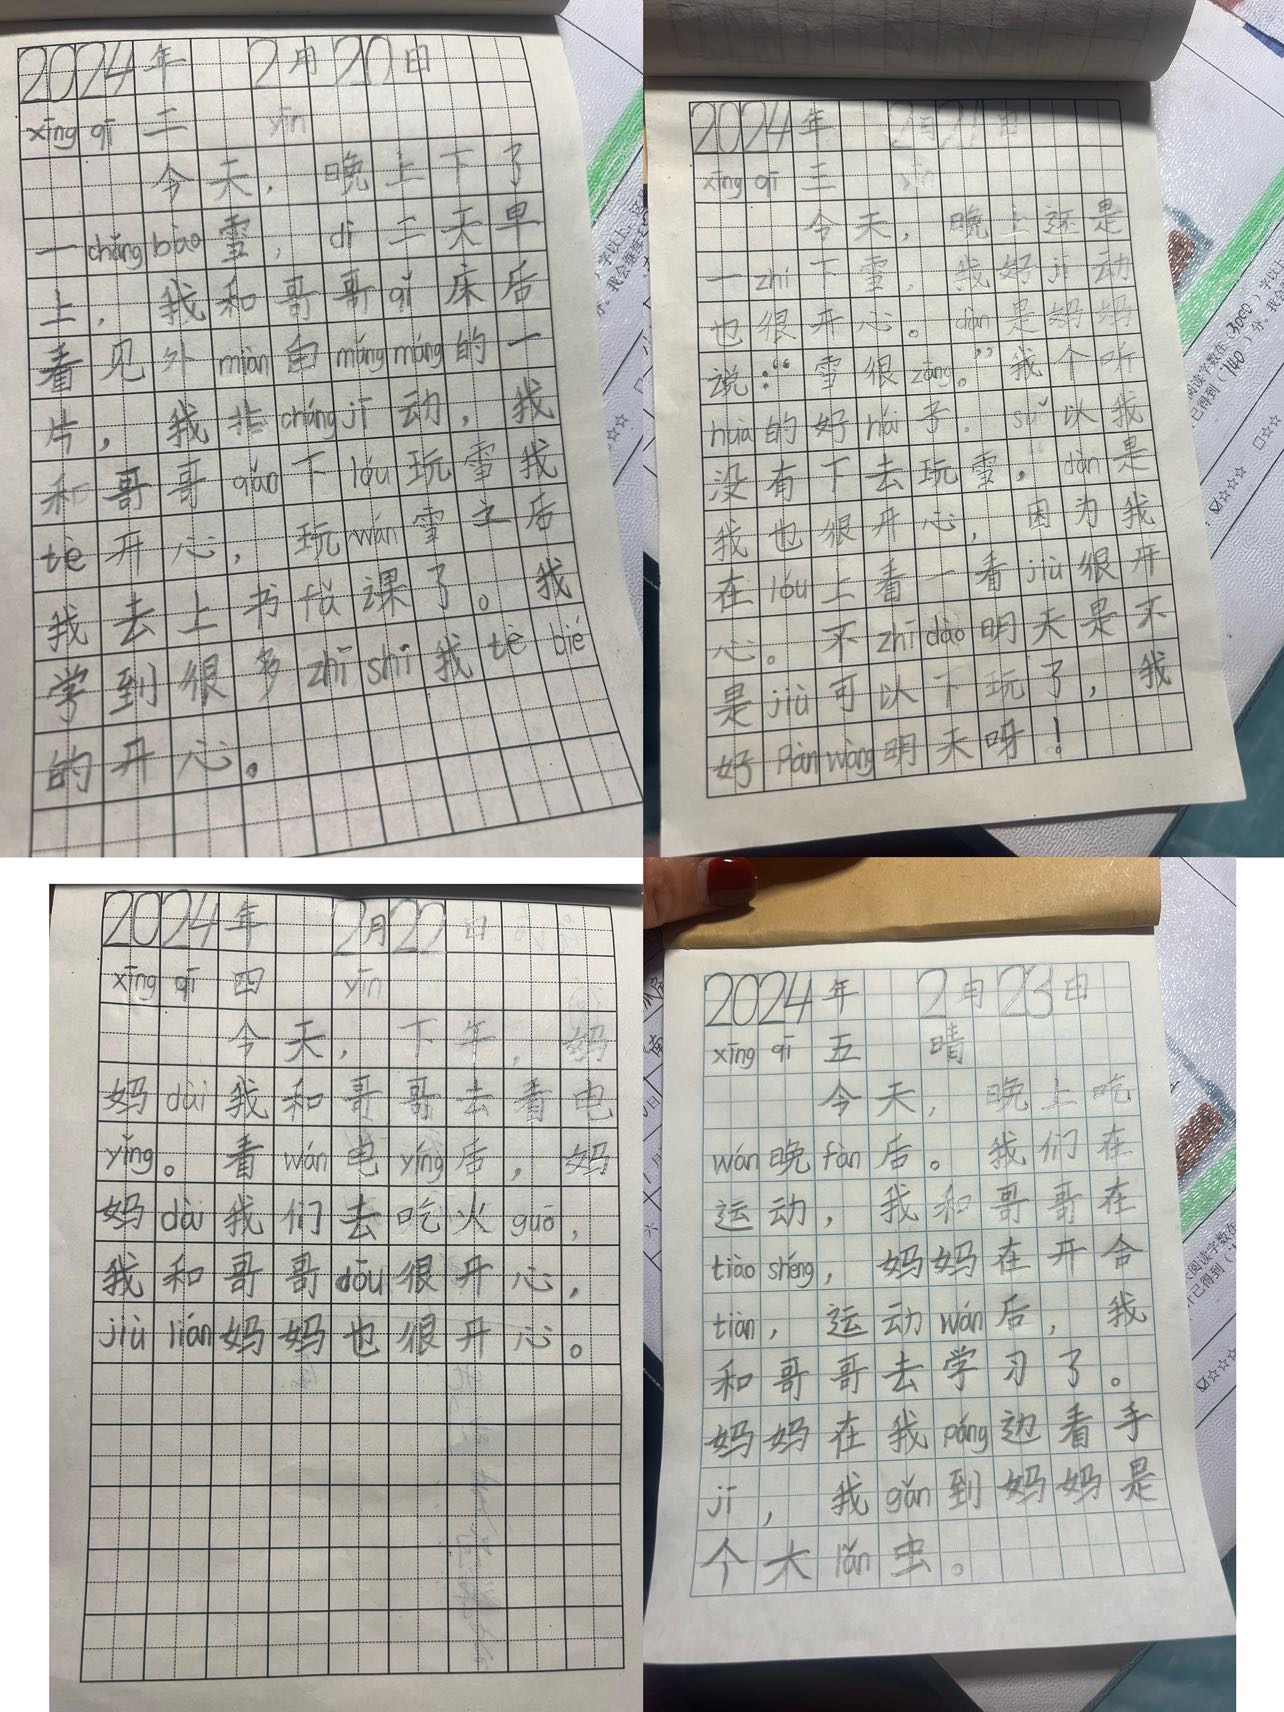 2024年 2月20日
xīng qī 二 yīn
今天，晚上下了
一cháng bào雪，dì二天早
上，我和哥哥qǐ床后
看见外miàn白máng máng的一
片，我非cháng jī动，我
和哥哥gǎn下lóu玩雪我
tè开心，玩wán雪之后
我去上书fǎ课了。我
学到很多zhī shi我tè bié
的开心。
2024年 2月21日
xīng qī 三 yīn
今天，晚上还是
一zhí下雪，我好jī动
也很开心。dàn是妈妈
说：“雪很zāng。”我个听
huà的好hái子，suǒ以我
没有下去玩雪，dàn是
我也很开心，因为我
在lóu上看一看jiù很开
心。不zhī dào明天是不
是jiù可以下玩了，我
好Pàn wàng明天呀！
2024年 2月22日
xīng qī 四 yīn
今天，下午，妈
妈dài我和哥哥去看电
yǐng。看wán电yǐng后，妈
妈dài我们去吃火guō，
我和哥哥dōu很开心，
jiù lián妈妈也很开心。
2024年 2月23日
xīng qī 五 晴
今天，晚上吃
wán晚fàn后。我们在
运动，我和哥哥在
tiào shéng，妈妈在开合
tiào，运动wán后，我
和哥哥去学习了。
妈妈在我páng边看手
jī，我gǎn到妈妈是
个大lǎn虫。